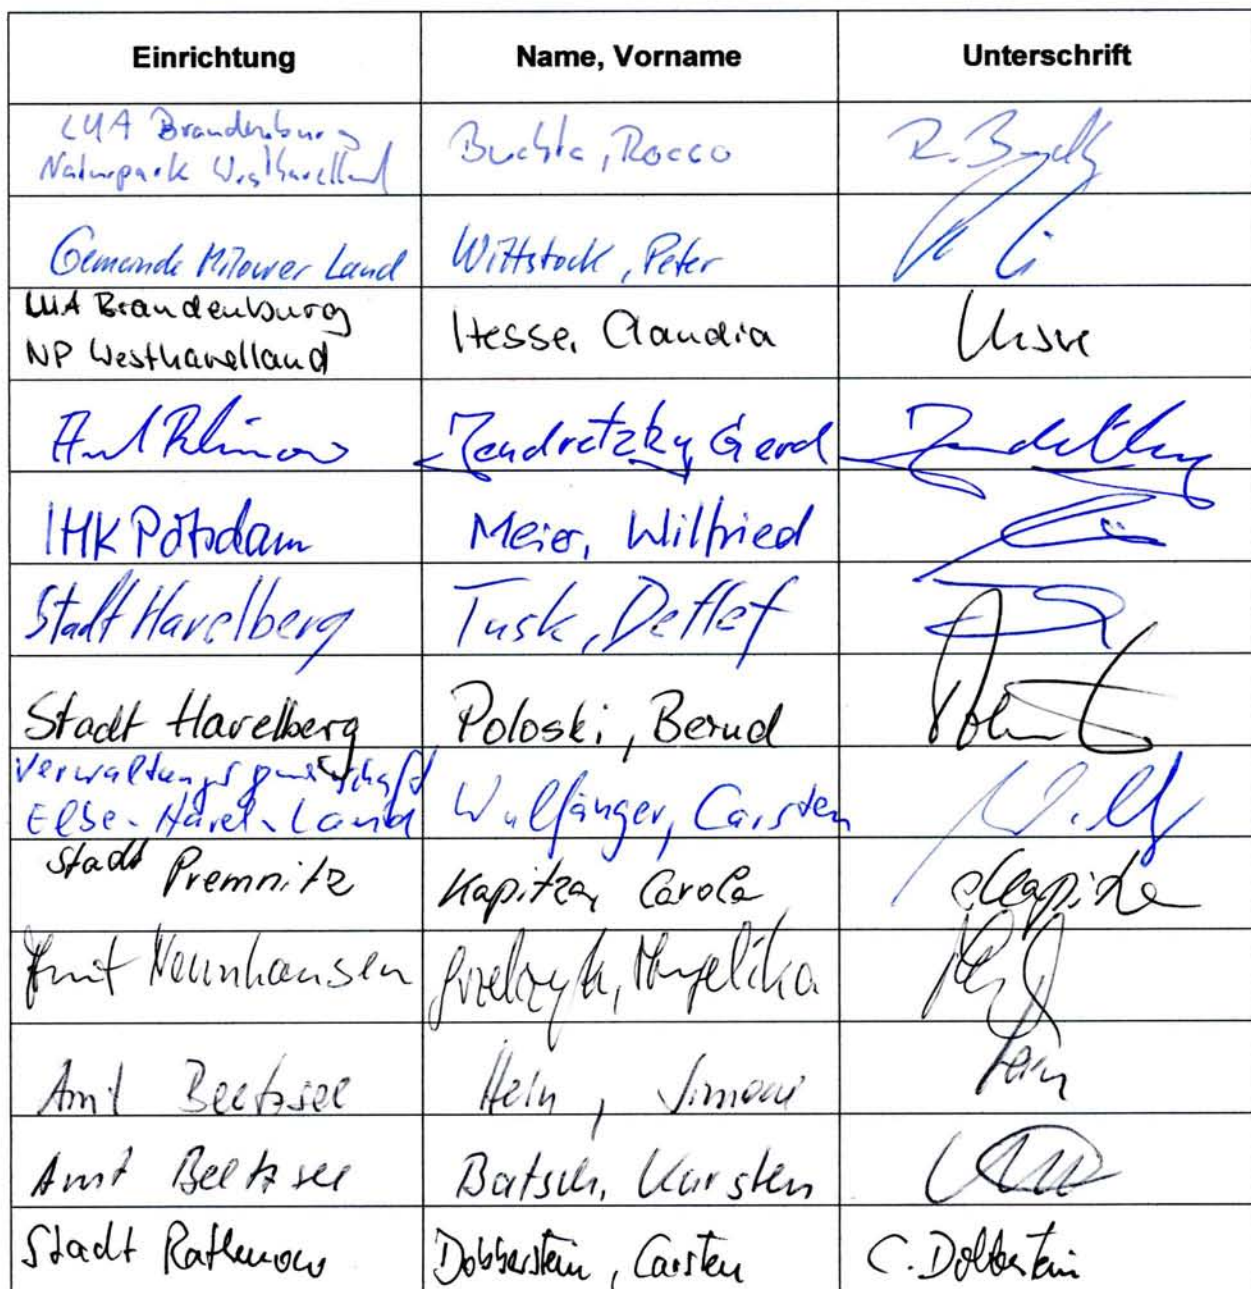 Einrichtung Name, Vorname Unterschrift
LUA Brandenburg
Naturpark Westhavelland Buchta, Rocco R. Buchta
Gemeinde Milower Land Wittstock, Peter
LUA Brandenburg
NP Westhavelland Hesse, Claudia Hesse
Amt Rhinow Jendretzky, Gerd Jendretzky
IHK Potsdam Meier, Wilfried
Stadt Havelberg Tusk, Detlef
Stadt Havelberg Poloski, Bernd
Verwaltungsgemeinschaft
Elbe-Havel-Land Wulfänger, Carsten
Stadt Premnitz Kapitza, Carola Kapitza
Amt Nennhausen Angelika
Amt Beetzsee Hein, Simone Hein
Amt Beetzsee Batsch, Karsten
Stadt Rathenow Dobberstein, Carsten C. Dobberstein